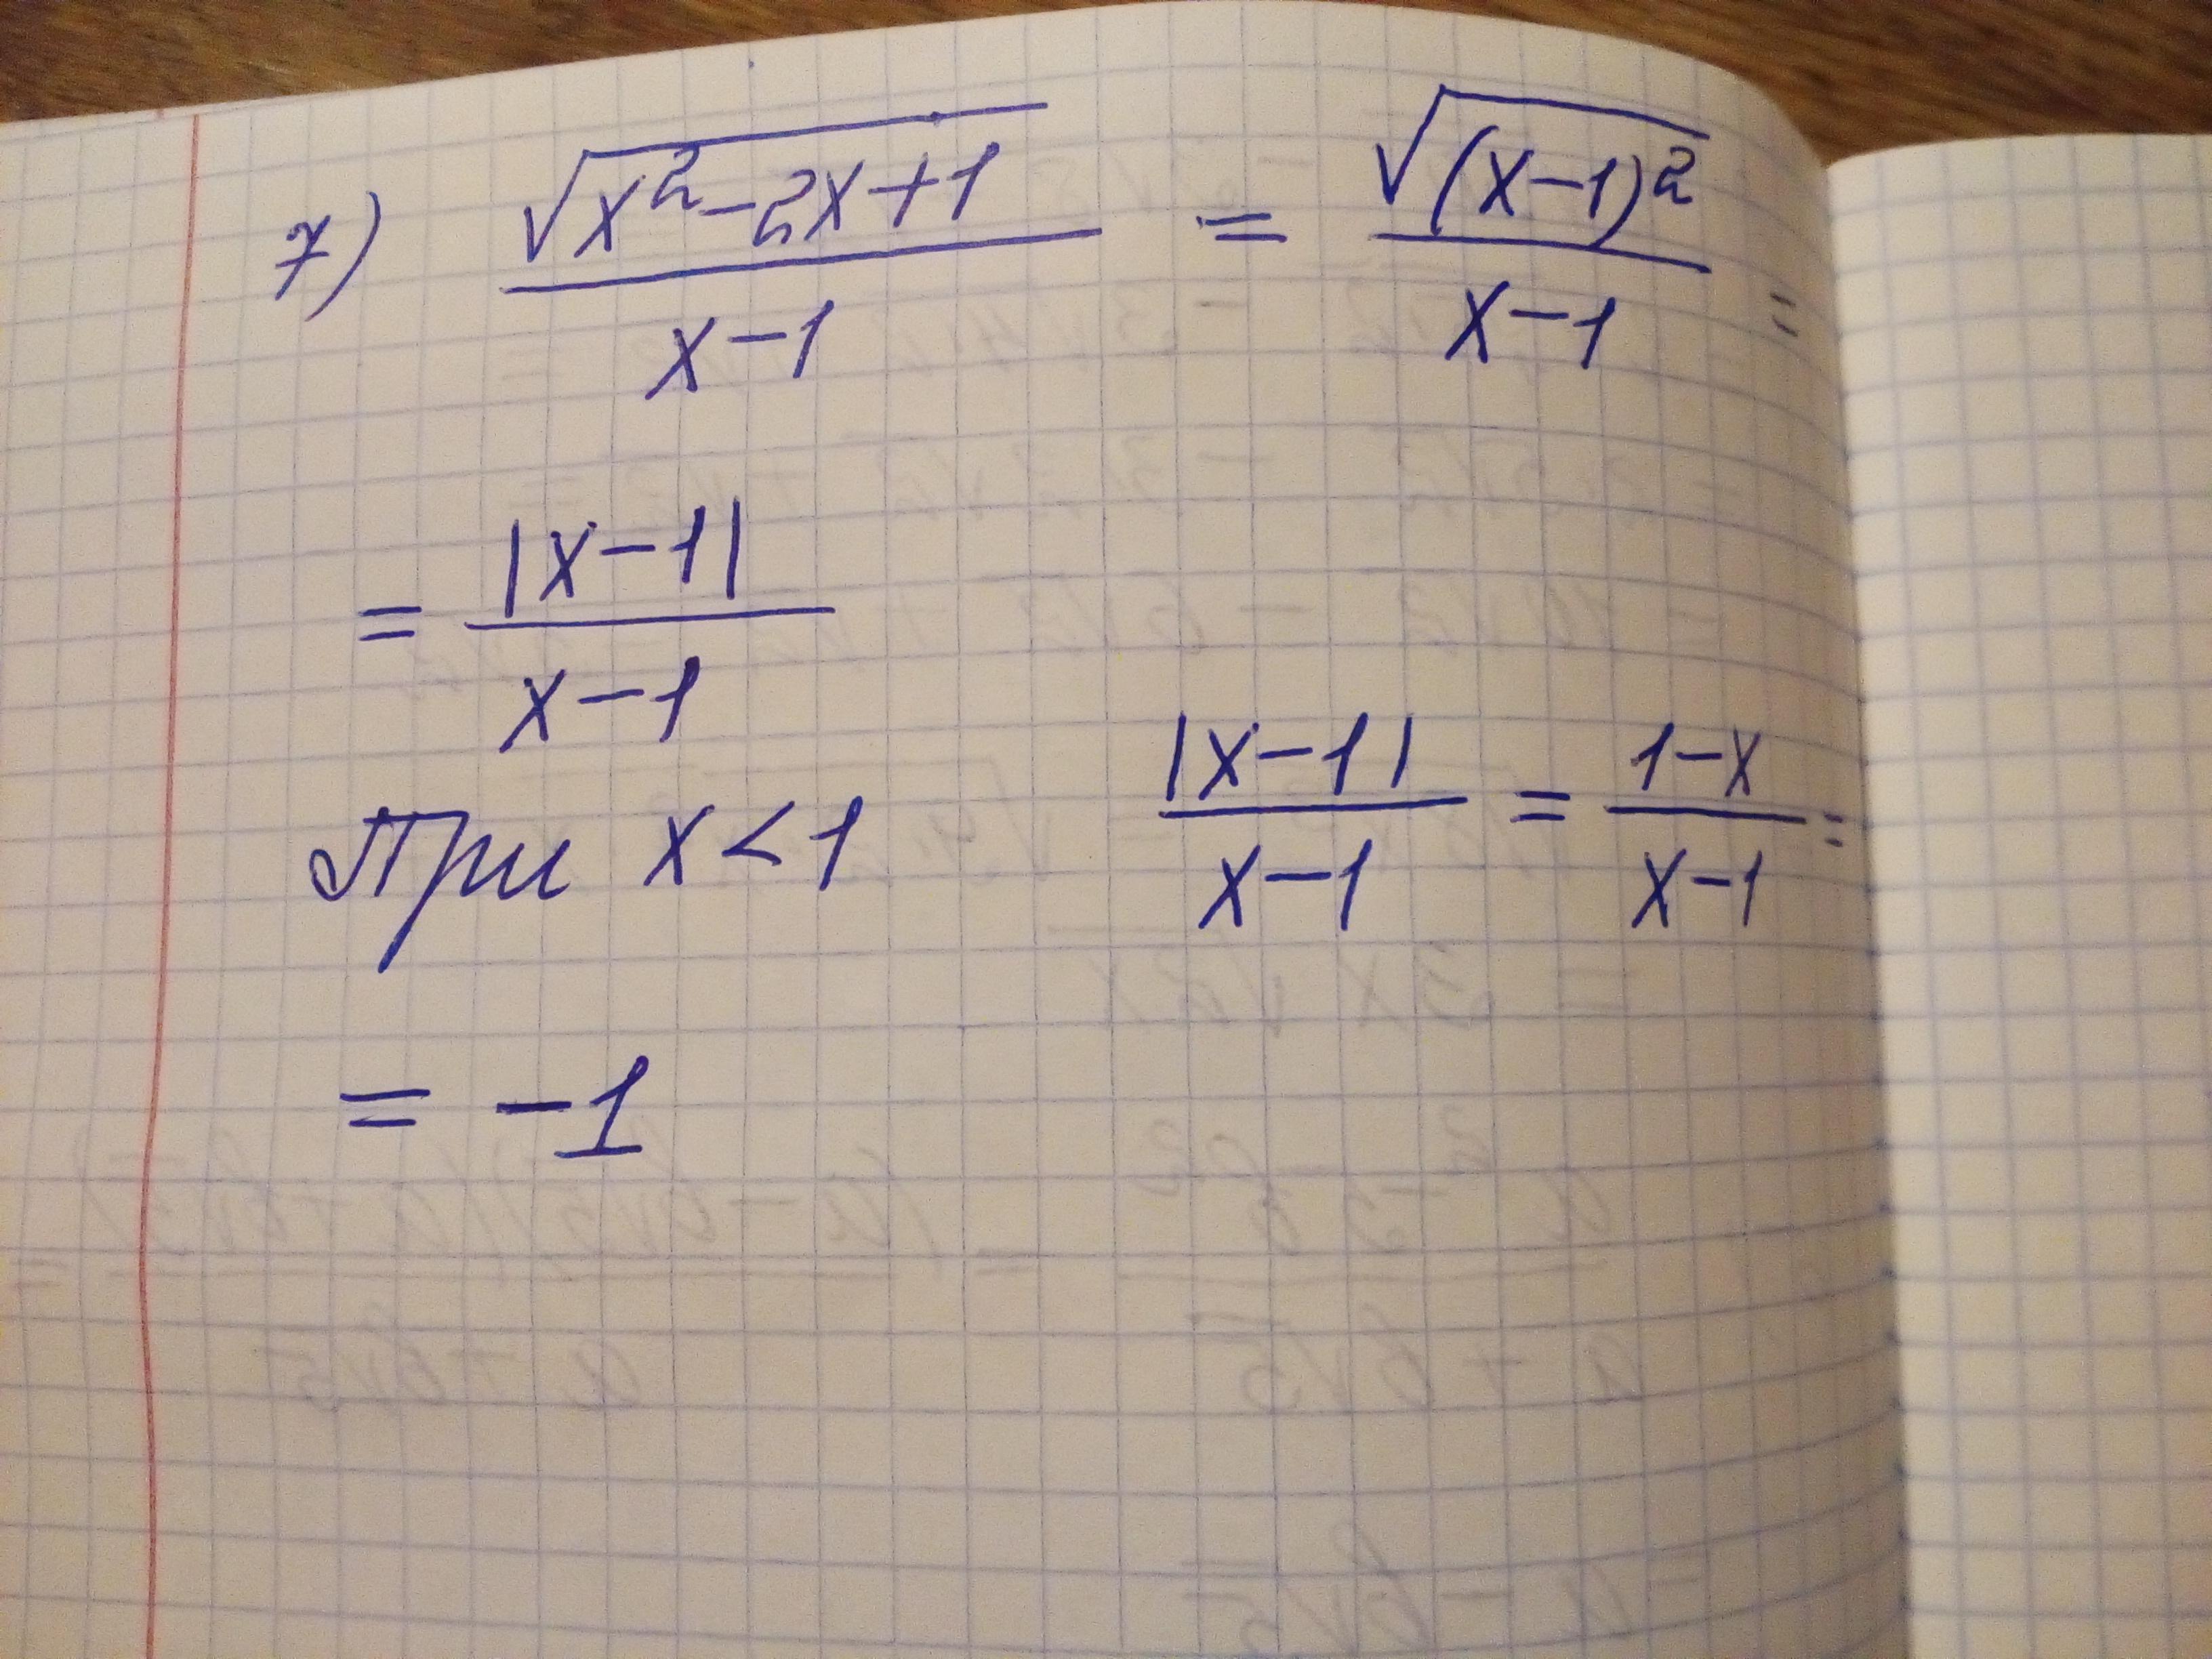 7) √(x²-2x+1) / (x-1) = √((x-1)²) / (x-1) =
= |x-1| / (x-1)
При x<1 |x-1| / (x-1) = (1-x) / (x-1) =
= -1